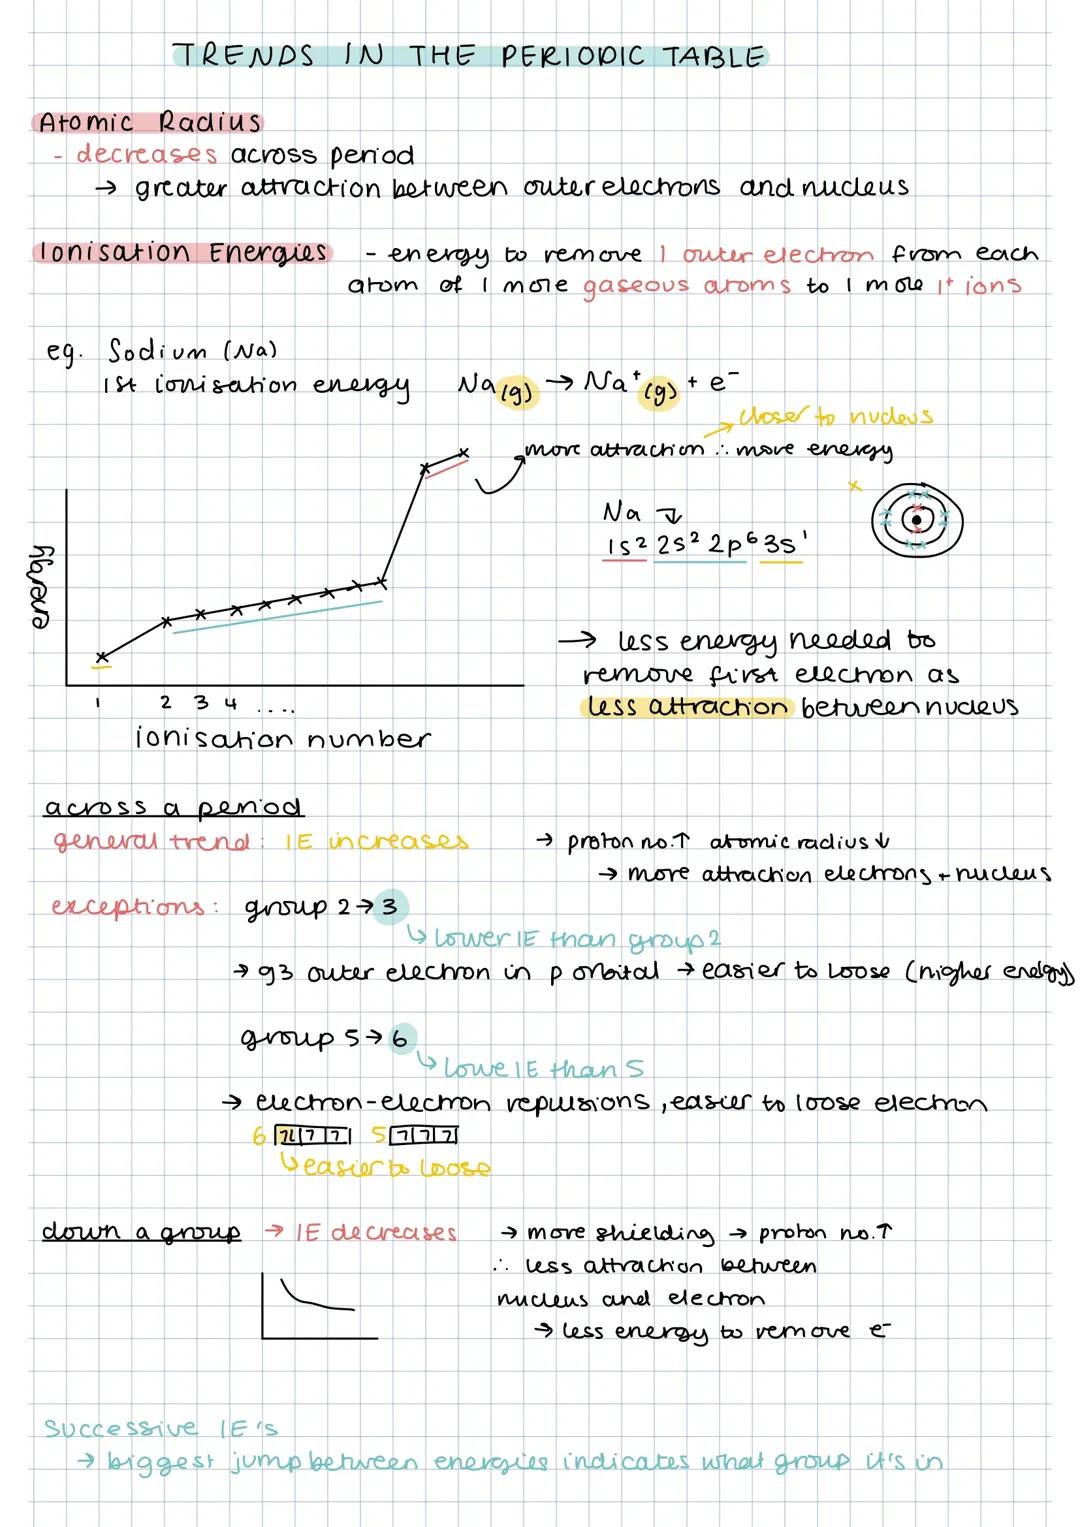 TRENDS IN THE PERIODIC TABLE
Atomic Radius
- decreases across period
→ greater attraction between outer electrons and nucleus
Ionisation Energies - energy to remove 1 outer electron from each
atom of 1 mole gaseous atoms to 1 mole 1+ ions
eg. Sodium (Na)
1st ionisation energy Na(g) → Na⁺(g) + e⁻
closer to nucleus
more attraction ∴ more energy
Na ↓
1s² 2s² 2p⁶ 3s¹
energy
→ less energy needed to
remove first electron as
less attraction between nucleus
1 2 3 4 ....
ionisation number
across a period
general trend: IE increases → proton no.↑ atomic radius ↓
→ more attraction electrons + nucleus
exceptions: group 2 → 3
↳ lower IE than group 2
→ g3 outer electron in p orbital → easier to loose (higher energy)
group 5 → 6
↳ lowe IE than 5
→ electron-electron repulsions, easier to loose electron
6 5
↳ easier to loose
down a group → IE decreases → more shielding → proton no.↑
∴ less attraction between
nucleus and electron
→ less energy to remove e⁻
Successive IE's
→ biggest jump between energies indicates what group it's in